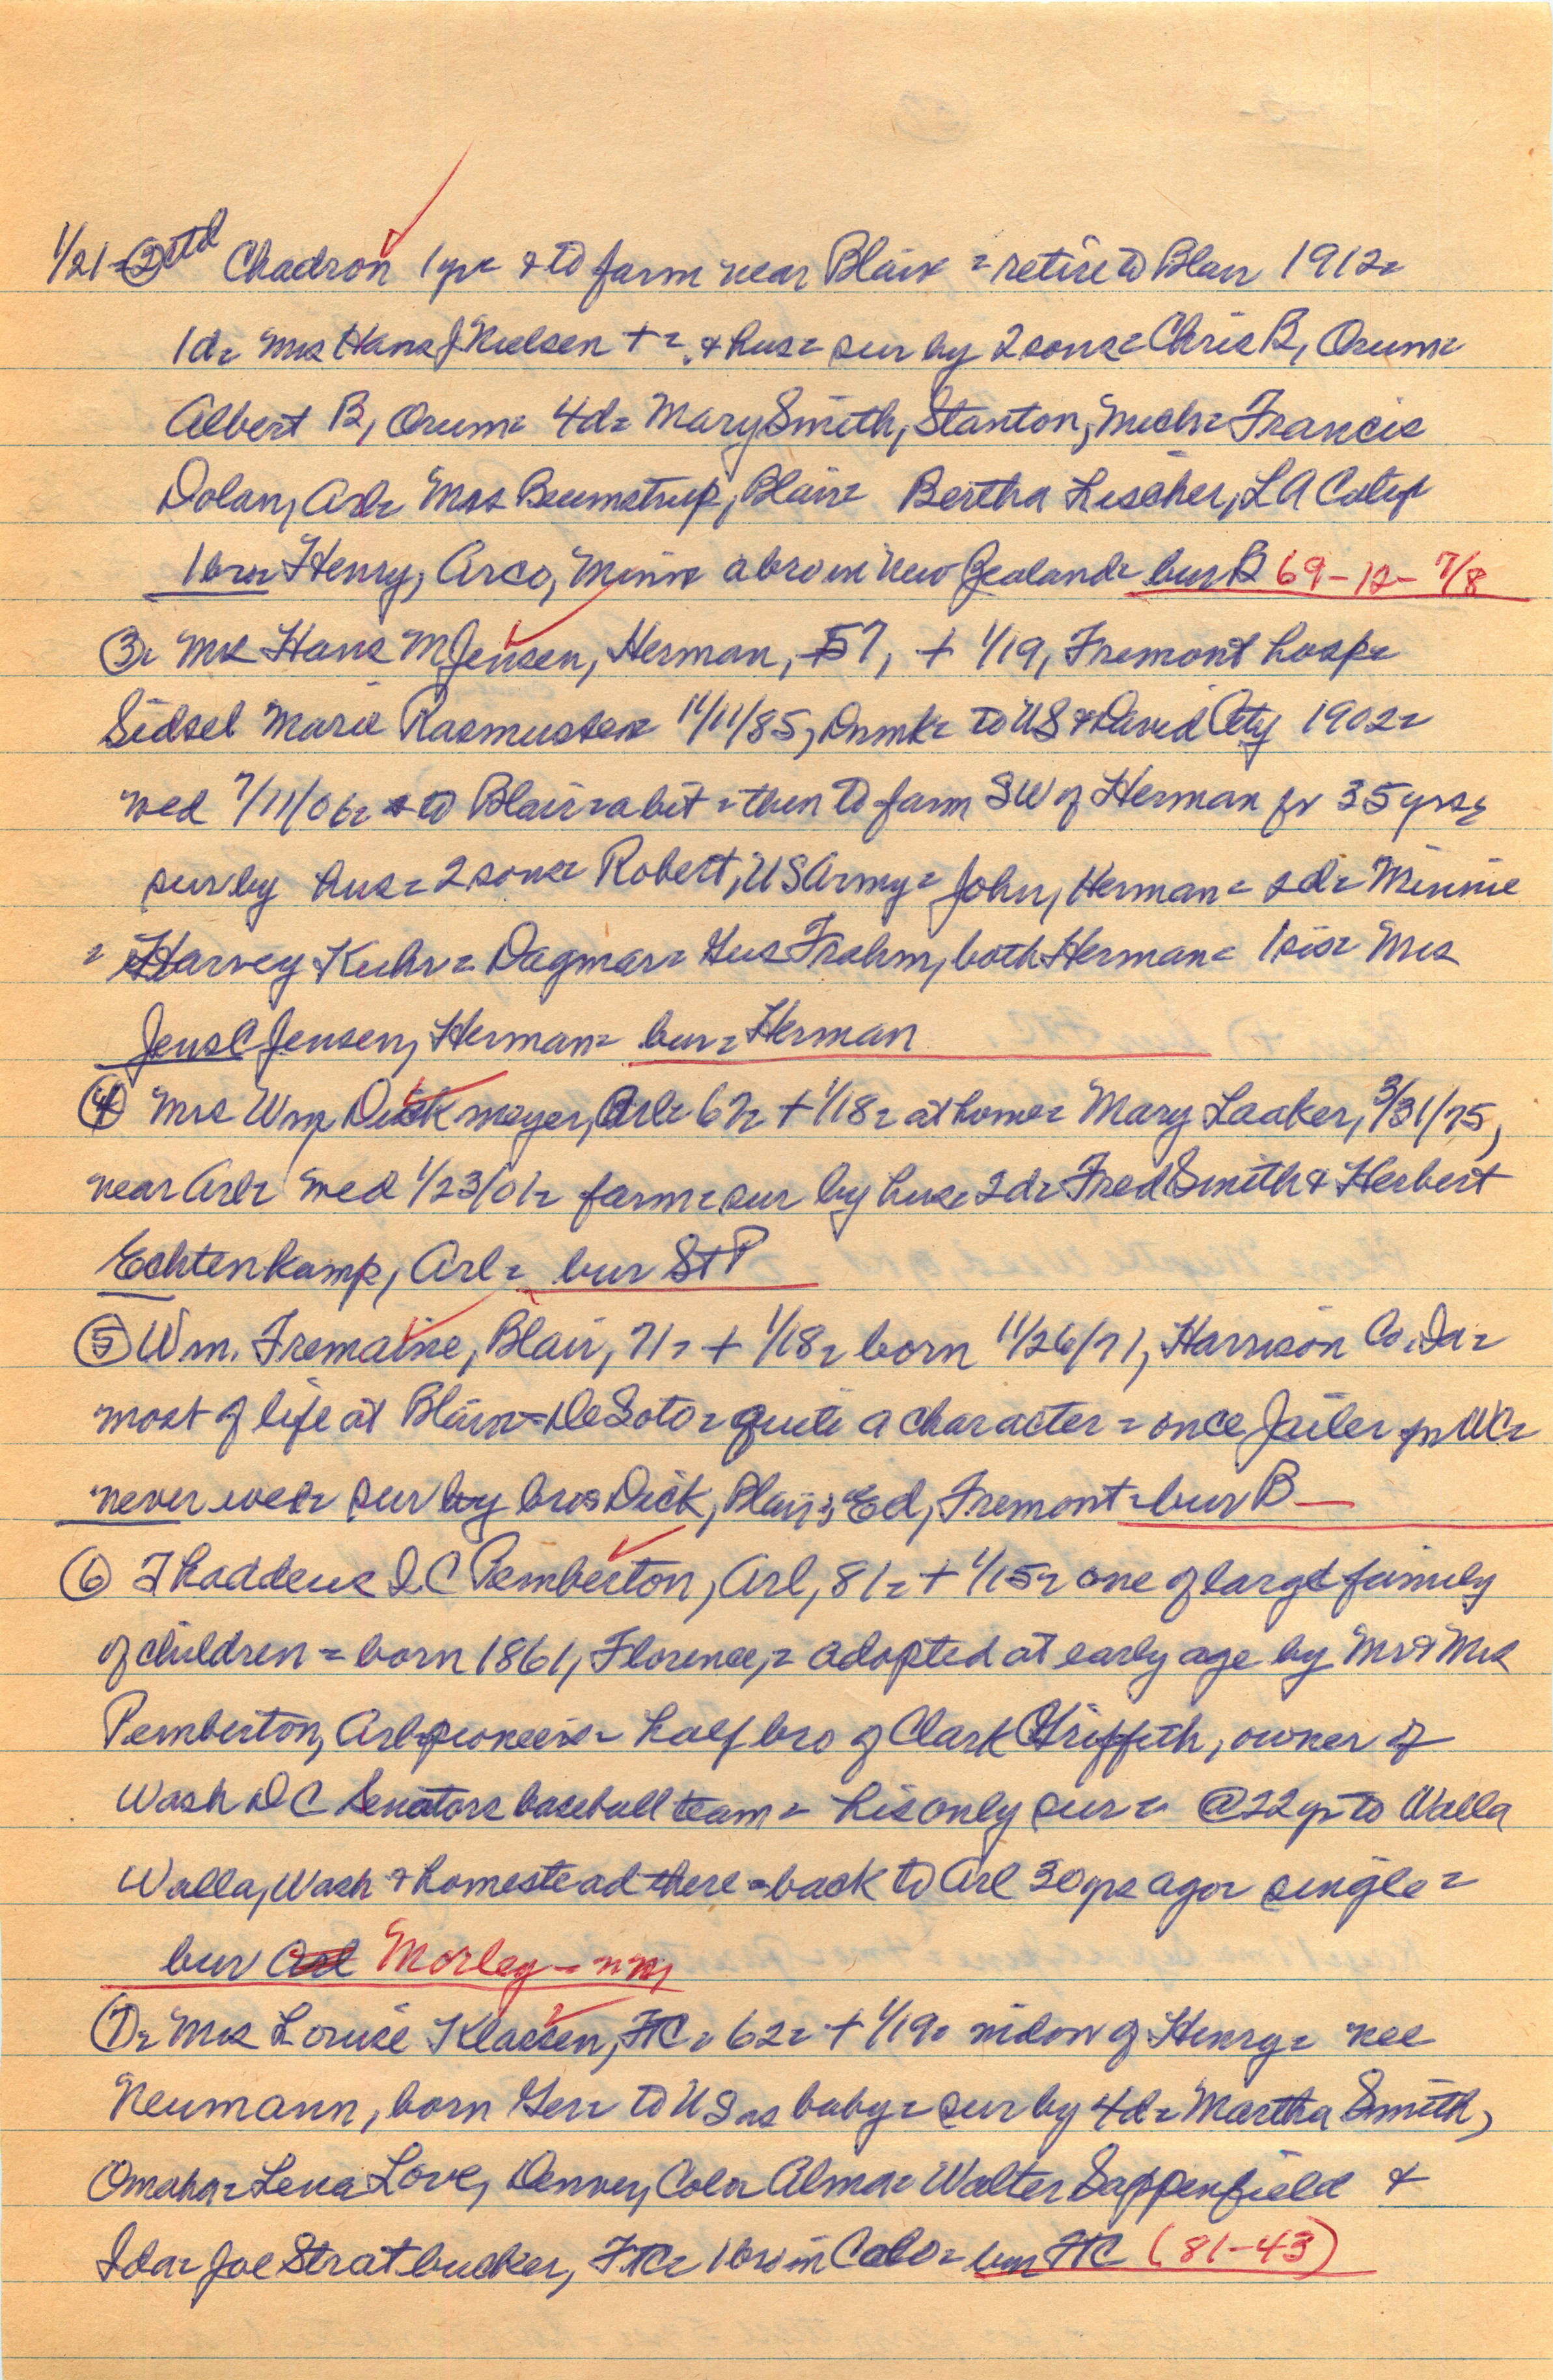 1/21 - ② ctd Chadron 1 yr = & to farm near Blair = retire to Blair 1912 =
1d = Mrs Hans J Nielsen + = & hus = sur by 2 sons = Chris B, Orum =
Albert B, Orum = 4d = Mary Smith, Stanton, Mich = Francis
Dolan, Arl = Mrs Beumstrup, Blair = Bertha Lischer, LA Calif
1 bro = Henry, Arco, Minn = a bro in New Zealand = bur B 69-12-7/8
③ = Mrs Hans M Jensen, Herman, 57, + 1/19, Fremont hosp =
Sidsel Marie Rasmussen = 11/11/85, Dnmk = to US & David City 1902 =
wed 7/11/06 = & to Blair = a bit = then to farm SW of Herman fr 35 yrs =
sur by hus = 2 sons = Robert, US Army = John, Herman = 2d = Minnie
= Harvey Kuhr = Dagmar = Gus Frahm, both Herman = 1 sis = Mrs
Jens C Jensen, Herman = bur = Herman
④ Mrs Wm Dickmeyer, Arl = 67 = + 1/18 = at home = Mary Laaker, 3/31/75,
near Arl = wed 1/23/01 = farm = sur by hus = 2d = Fred Smith & Herbert
Echtenkamp, Arl = bur St P
⑤ Wm. Fremaine, Blair, 71 = + 1/18 = born 11/26/71, Harrison Co. Ia =
most of life at Blair = DeSoto = quite a character = once Jailer fr WC =
never wed = sur by bros Dick, Blair; Ed, Fremont = bur B
⑥ Thaddeus D C Pemberton, Arl, 81 = + 1/15 = one of large family
of children = born 1861, Florence, = adopted at early age by Mr & Mrs
Pemberton, Arl pioneers = half bro of Clark Griffith, owner of
Wash D C Senators baseball team = his only sur = @ 22 yr to Walla
Walla, Wash & homestead there = back to Arl 30 yrs ago = single =
bur Arl Morley - nm
⑦ = Mrs Louise Klassen, FtC = 62 = + 1/19 = widow of Henry = nee
Neumann, born Ger = to US as baby = sur by 4d = Martha Smith,
Omaha = Lena Love, Denver, Colo = Alma = Walter Sappenfield &
Ida = Joe Stratbucker, FtC = 1 bro in Colo = bur FtC (81-43)